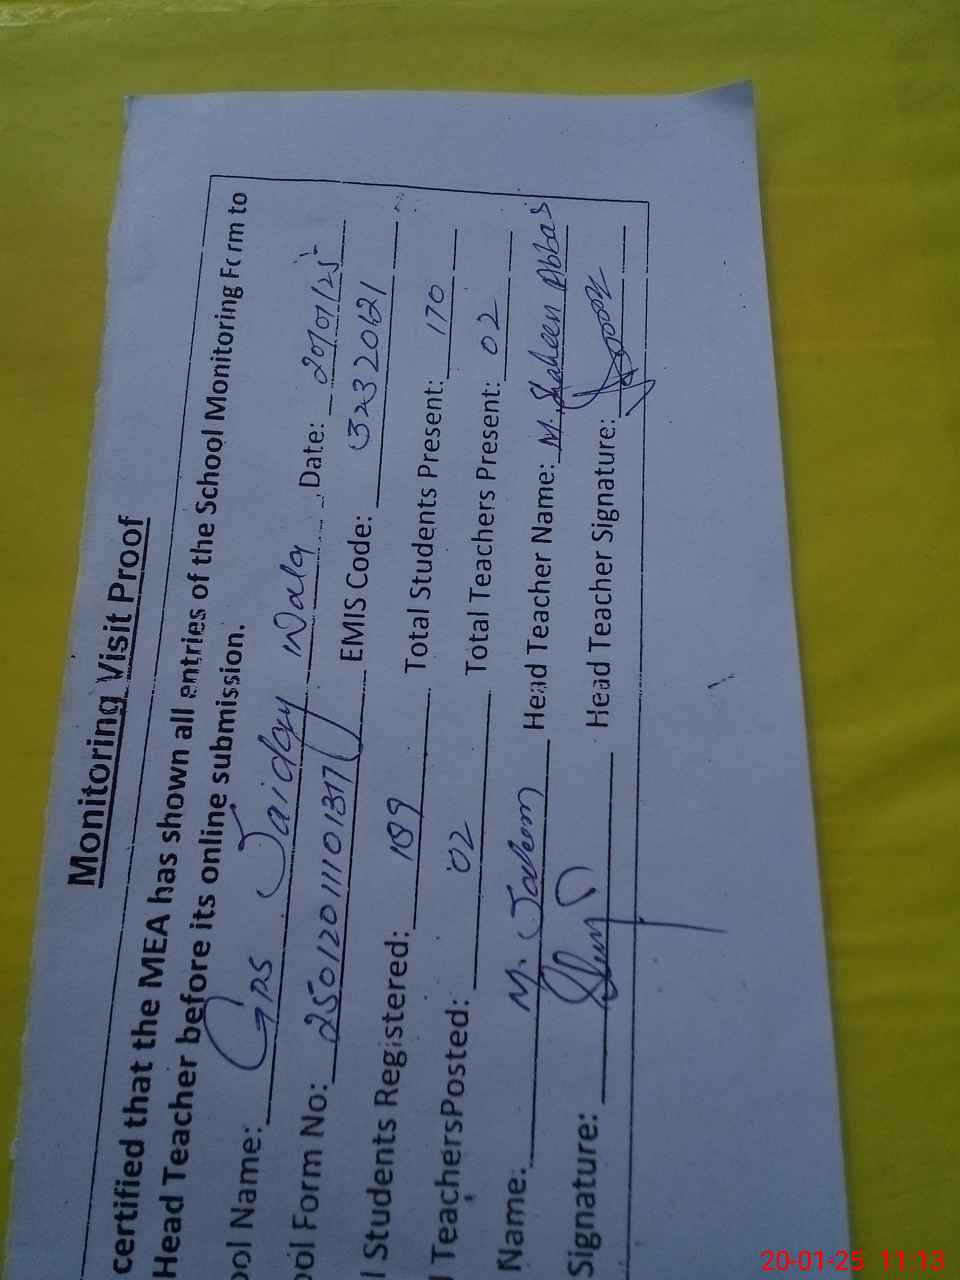 Monitoring Visit Proof
certified that the MEA has shown all entries of the School Monitoring Form to
Head Teacher before its online submission.
ool Name: GPS Jaiday Wala Date: 20/01/25
ool Form No: 25012011101317 EMIS Code: 32320121
l Students Registered: 189 Total Students Present: 170
l TeachersPosted: 02 Total Teachers Present: 02
Name: M. Saleem Head Teacher Name: M. Shaheen Abbas
Signature: Head Teacher Signature:
20-01-25 11:13